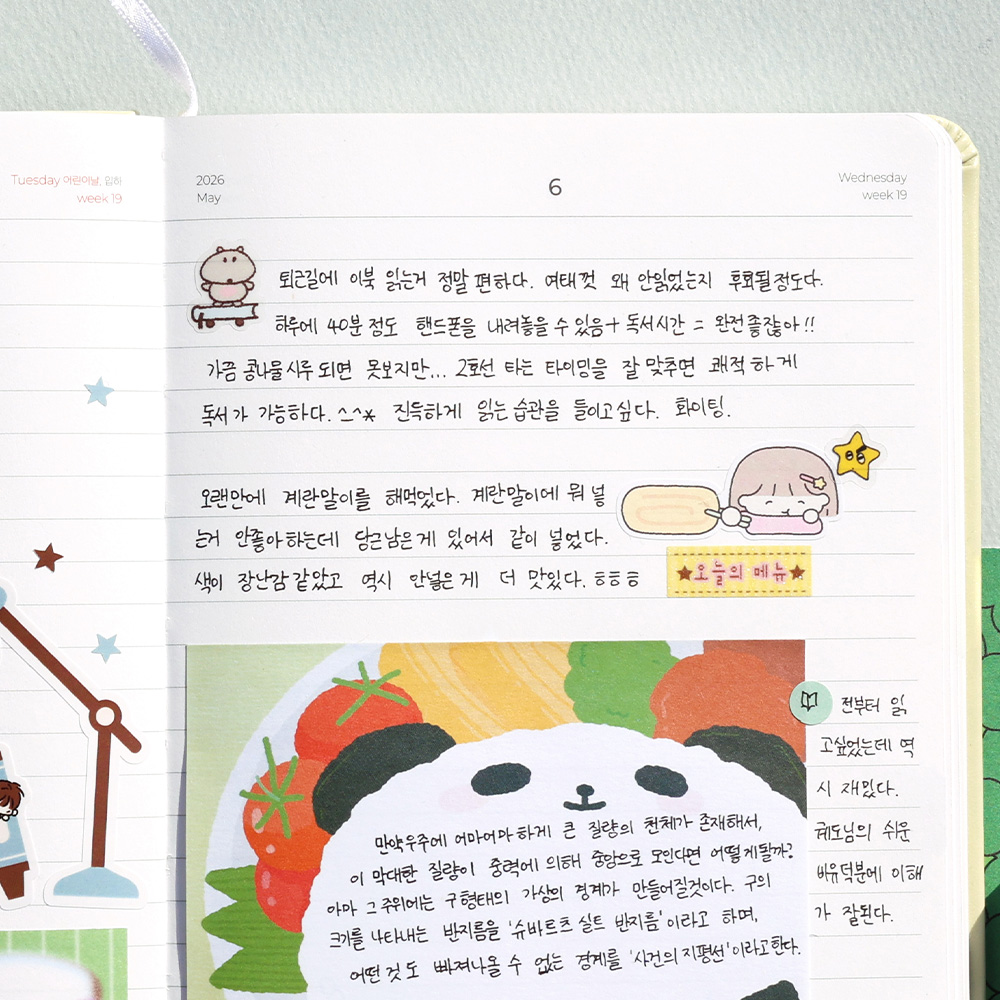 Tuesday 어린이날, 입하
week 19
2026
May
6
Wednesday
week 19
퇴근길에 이북 읽는거 정말 편하다. 여태껏 왜 안읽었는지 후회될정도다.
하루에 40분 정도 핸드폰을 내려놓을 수 있음 + 독서시간 = 완전 좋잖아!!
가끔 콩나물시루 되면 못보지만... 2호선 타는 타이밍을 잘 맞추면 쾌적하게
독서가 가능하다. ^_^* 진득하게 읽는 습관을 들이고싶다. 화이팅.
오랜만에 계란말이를 해먹었다. 계란말이에 뭐 넣
는거 안좋아하는데 당근남은게 있어서 같이 넣었다.
색이 장난감 같았고 역시 안넣은게 더 맛있다. ㅎㅎㅎ
★오늘의 메뉴★
만약 우주에 어마어마하게 큰 질량의 천체가 존재해서,
이 막대한 질량이 중력에 의해 중앙으로 모인다면 어떻게될까?
아마 그 주위에는 구형태의 가상의 경계가 만들어질것이다. 구의
크기를 나타내는 반지름을 '슈바르츠 실트 반지름'이라고 하며,
어떤 것도 빠져나올 수 없는 경계를 '사건의 지평선'이라고한다.
전부터 읽
고싶었는데 역
시 재밌다.
궤도님의 쉬운
비유덕분에 이해
가 잘된다.